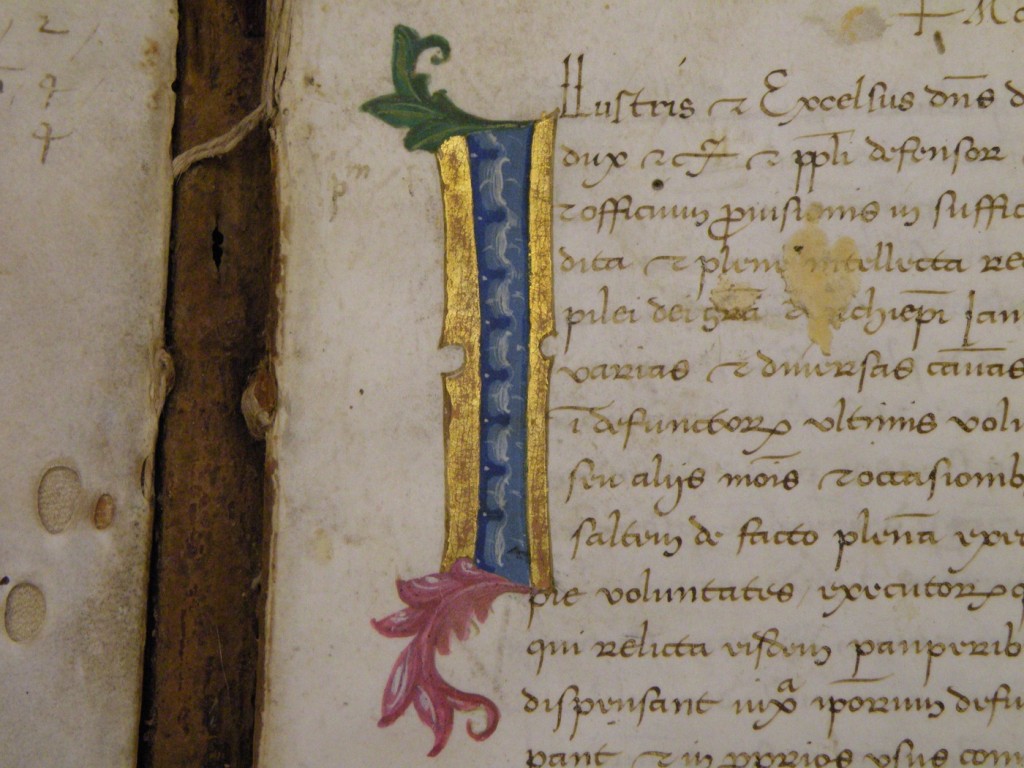 Illustris & Excelsus dn̄s d
dux & & ppl̄i defensor
& officium ꝓuisionis in suffic
dita & plene intellecta re
pilei dei gr̄a archiepī Jan
varias & diuersas cāūas
ī defunctoꝝ vltimis volu
seu alijs mōīs & occasionib
saltem de facto plenā exe
pie voluntates executoꝝ q
qui relicta eisdem pauperib
dispensant iuxͣ ipsorum defu
pant & in pprios vsus com